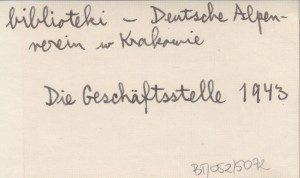 biblioteki – Deutsche Alpen-
verein w Krakowie
Die Geschäftsstelle 1943